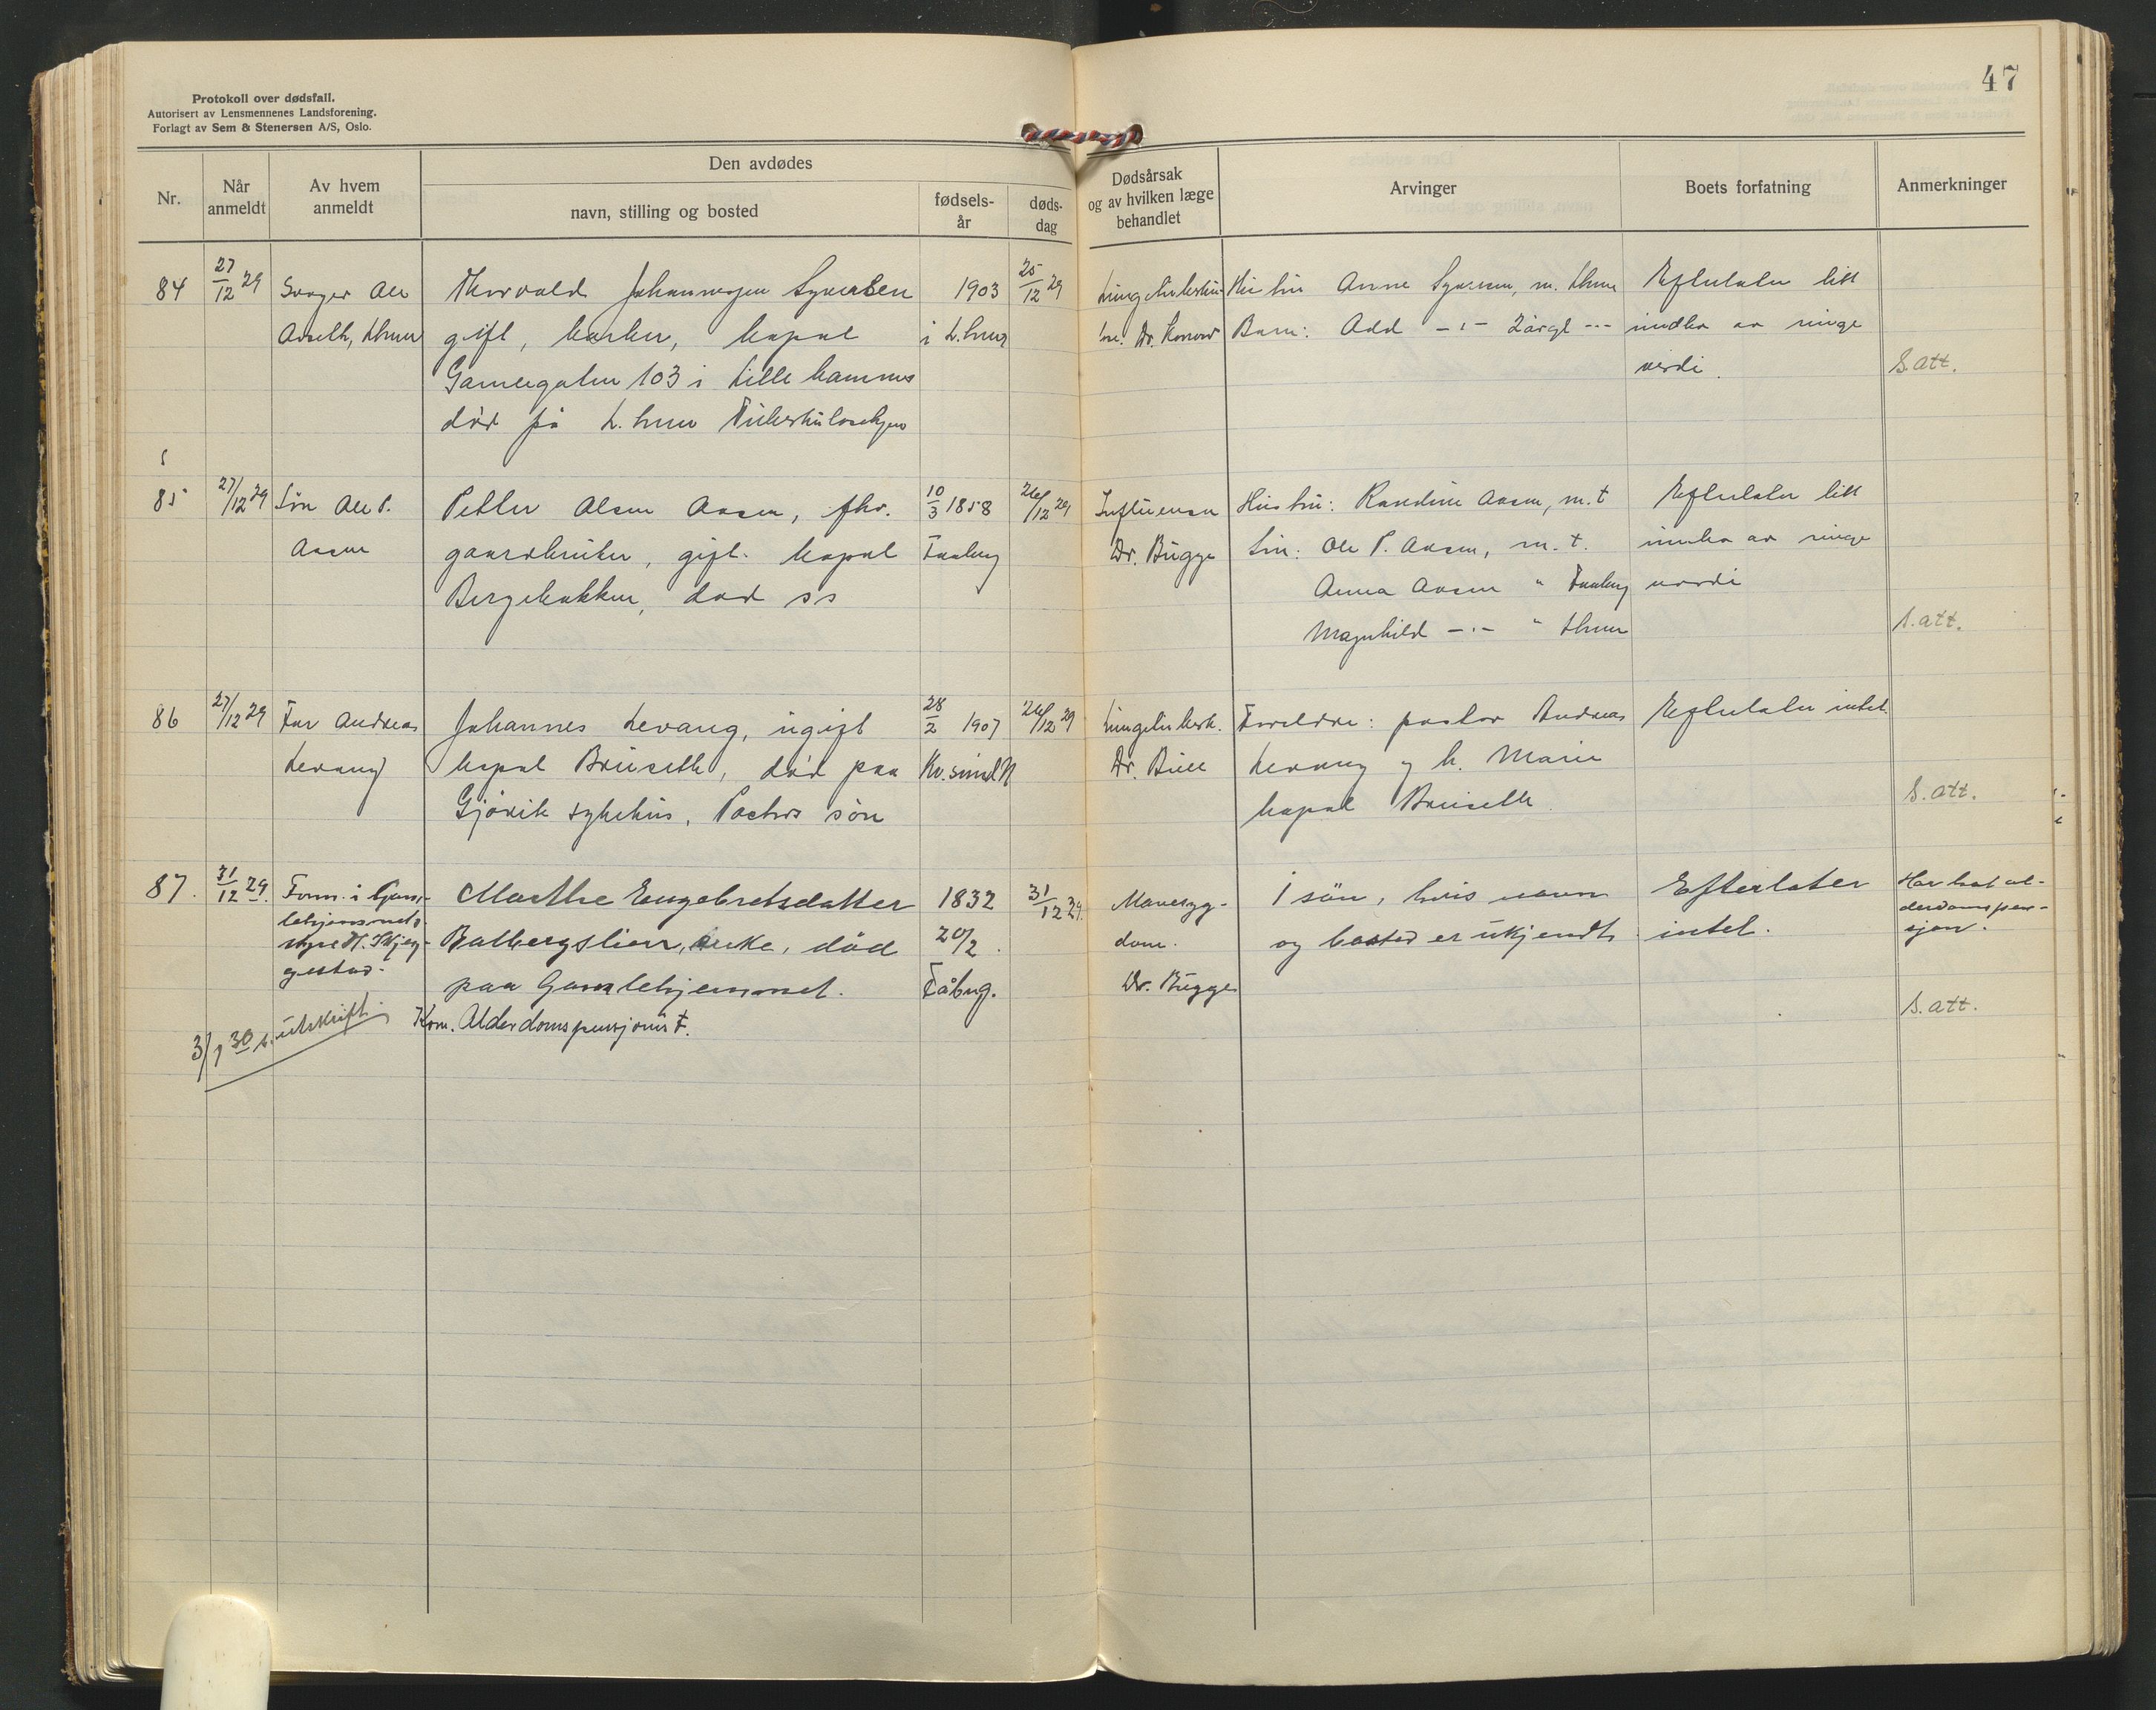 47
Protokoll over dødsfall.
Autorisert av Lensmennenes Landsforening.
Forlagt av Sem & Stenersen A/S, Oslo.
Nr.
Når anmeldt
Av hvem anmeldt
Den avdødes
navn, stilling og bosted
fødsels-år
døds-dag
Dødsårsak og av hvilken læge behandlet
Arvinger
Boets forfatning
Anmerkninger
84
27/12 29
Svoger Ole
Thorvald Johannesen Syversen
gift, barber, bopæl
Gamlegaten 103 i Lillehammer
død på L.hmr Tuberkulosehjem
1903
i L.hmr
25/12 29
Hustru Anne Syversen, m. Lhmr
Barn: Odd -"- 2 årgl -"-
Efterlater litt
indbo av ringe
verdi.
S. att.
85
27/12 29
Søn Ole P.
Aasen
Petter Olsen Aasen, fhv.
gaardbruker, gift. bopæl
Bergebakken, død ss
10/3 1858
Faaberg
26/12 29
Influensa
Dr. Bugge
Hustru: Randine Aasen, m. t
Søn: Ole P. Aasen, m. t.
Anna Aasen " Faaberg
Magnhild -"- " Lhmr
Efterlater litt
innbo av ringe
verdi
S. att.
86
27/12 29
Far Andreas
Levang
Johannes Levang, ugift
bopæl Bruseth, død paa
Gjøvik sykehus. Pastors søn
28/2 1907
26/12 29
Lungetuberk.
Foreldre: pastor Andreas
Levang og h. Marie
bopæl Bruseth.
Efterlater intet.
S. att.
87.
31/12 29.
Form. i Gam-
lehjemmets
styre H. Skjeg-
gestad.
Marthe Engebretsdatter
Balbergslien, enke, død
paa Gamlehjemmet.
Kom. Alderdomspensjonist.
1832
20/2.
Fåbrg.
31/12 29.
Mavesyg-
dom.
Dr. Bugge
1 søn, hvis navn
og bosted er ukjendt.
Efterlater
intet.
Har hat al-
derdomspen-
sjon.
S. att.
3/1 30 s. utskrift